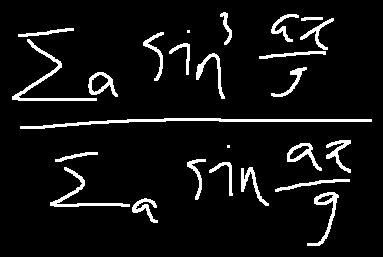 ∑_a sin³ aπ/9
∑_a sin aπ/9